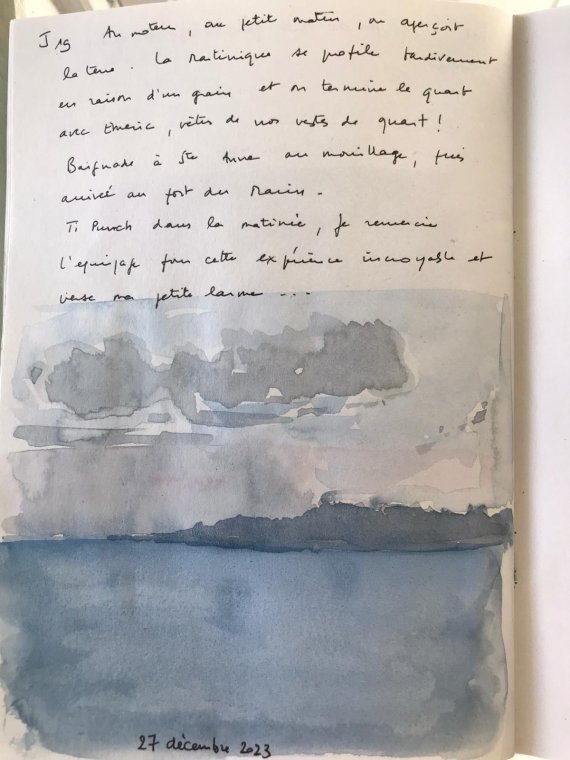 J 19 Au moteur, au petit matin, on aperçoit
la terre. La Martinique se profile tardivement
en raison d'un grain et on termine le quart
avec Emeric, vêtus de nos vestes de quart !
Baignade à Ste Anne au mouillage, puis
arrivée au port du Marin.
Ti Punch dans la matinée, je remercie
l'equipage pour cette expérience incroyable et
verse ma petite larme ...
27 décembre 2023